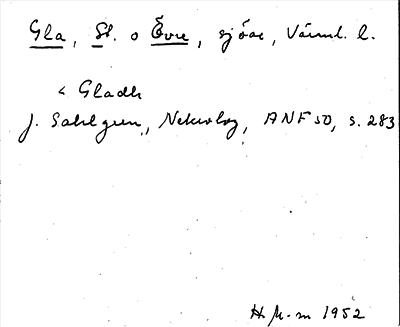 Gla, St. o Övre, sjöar, Värml. l.
< Gladh
J. Sahlgren, Nekrolog, ANF 50, s. 283
H M-m 1952